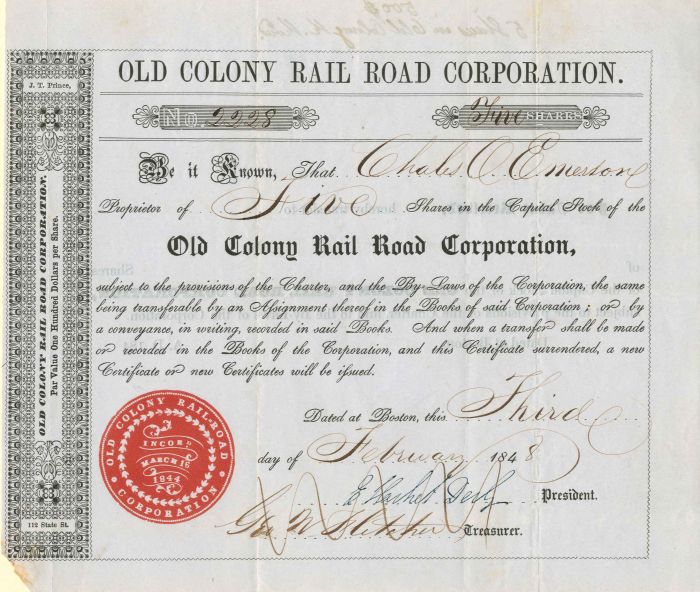 OLD COLONY RAIL ROAD CORPORATION.
No. 2228
Five SHARES
Be it Known, That Chales O. Emerson
Proprietor of Five Shares in the Capital Stock of the
Old Colony Rail Road Corporation,
subject to the provisions of the Charter, and the By-Laws of the Corporation, the same
being transferable by an Aſsignment thereof in the Books of said Corporation; or by
a conveyance, in writing, recorded in said Books. And when a transfer shall be made
or recorded in the Books of the Corporation, and this Certificate surrendered, a new
Certificate or new Certificates will be iſsued.
Dated at Boston, this Third
day of February 1848
E Hasket Derby President.
Treasurer.
J. T. Prince,
OLD COLONY RAIL ROAD CORPORATION.
Par Value One Hundred Dollars per Share.
112 State St.
OLD COLONY RAIL-ROAD
CORPORATION
INCORP.
MARCH 16
1844